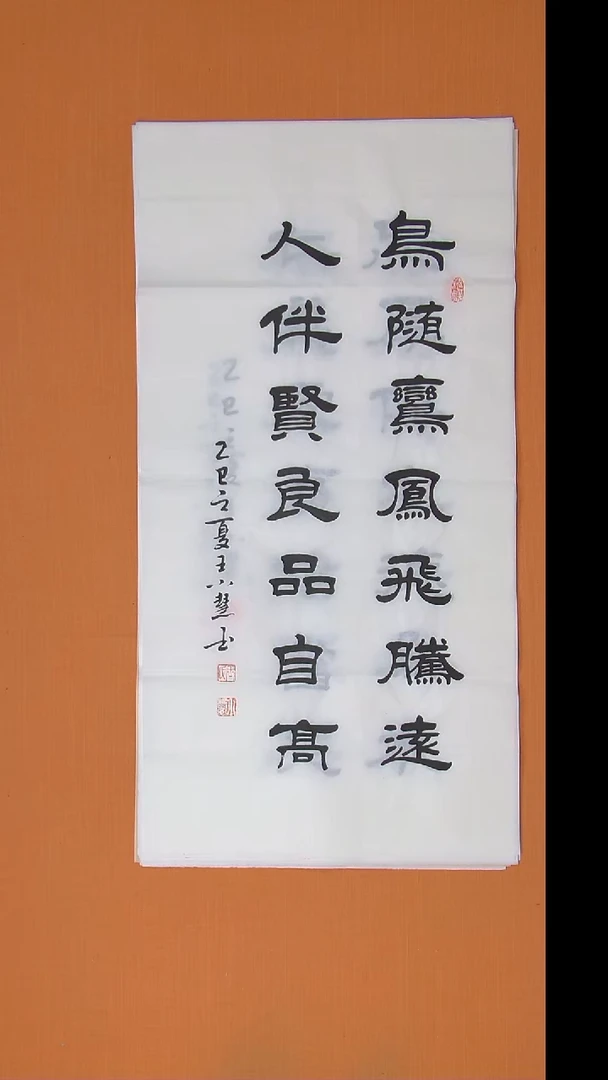 鳥隨鸞鳳飛騰遠
人伴賢良品自高
乙巳之夏王小慧书